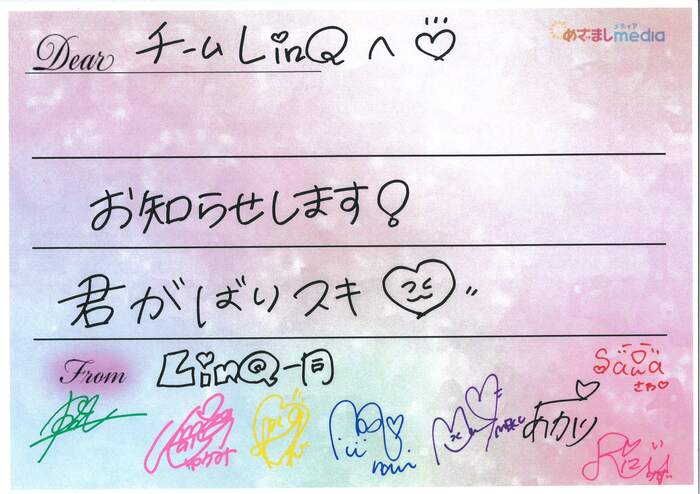 Dear チームLinQへ
めざましmedia
メディア
お知らせします!
君がばりスキ
From LinQ一同
Sawa
さわ
あかり